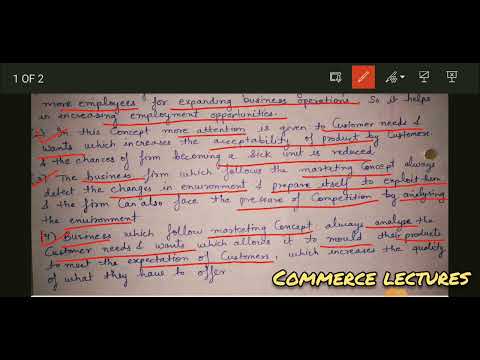 1 OF 2
more employees for expanding business operations. So it helps
in increasing employment opportunities.
In this Concept more attention is given to Customer needs &
wants which increases the acceptability of product by Customers
& the chances of firm becoming a sick unit is reduced.
The business firm which follows the marketing concept always
detect the changes in environment & prepare itself to exploit them
& the firm Can also face the pressure of Competition by analysing
the environment
(4) Business which follow marketing Concept always analyse the
Customer needs & wants which allows it to mould their products
to meet the expectation of Customers, which increases the quality
of what they have to offer
COMMERCE LECTURES